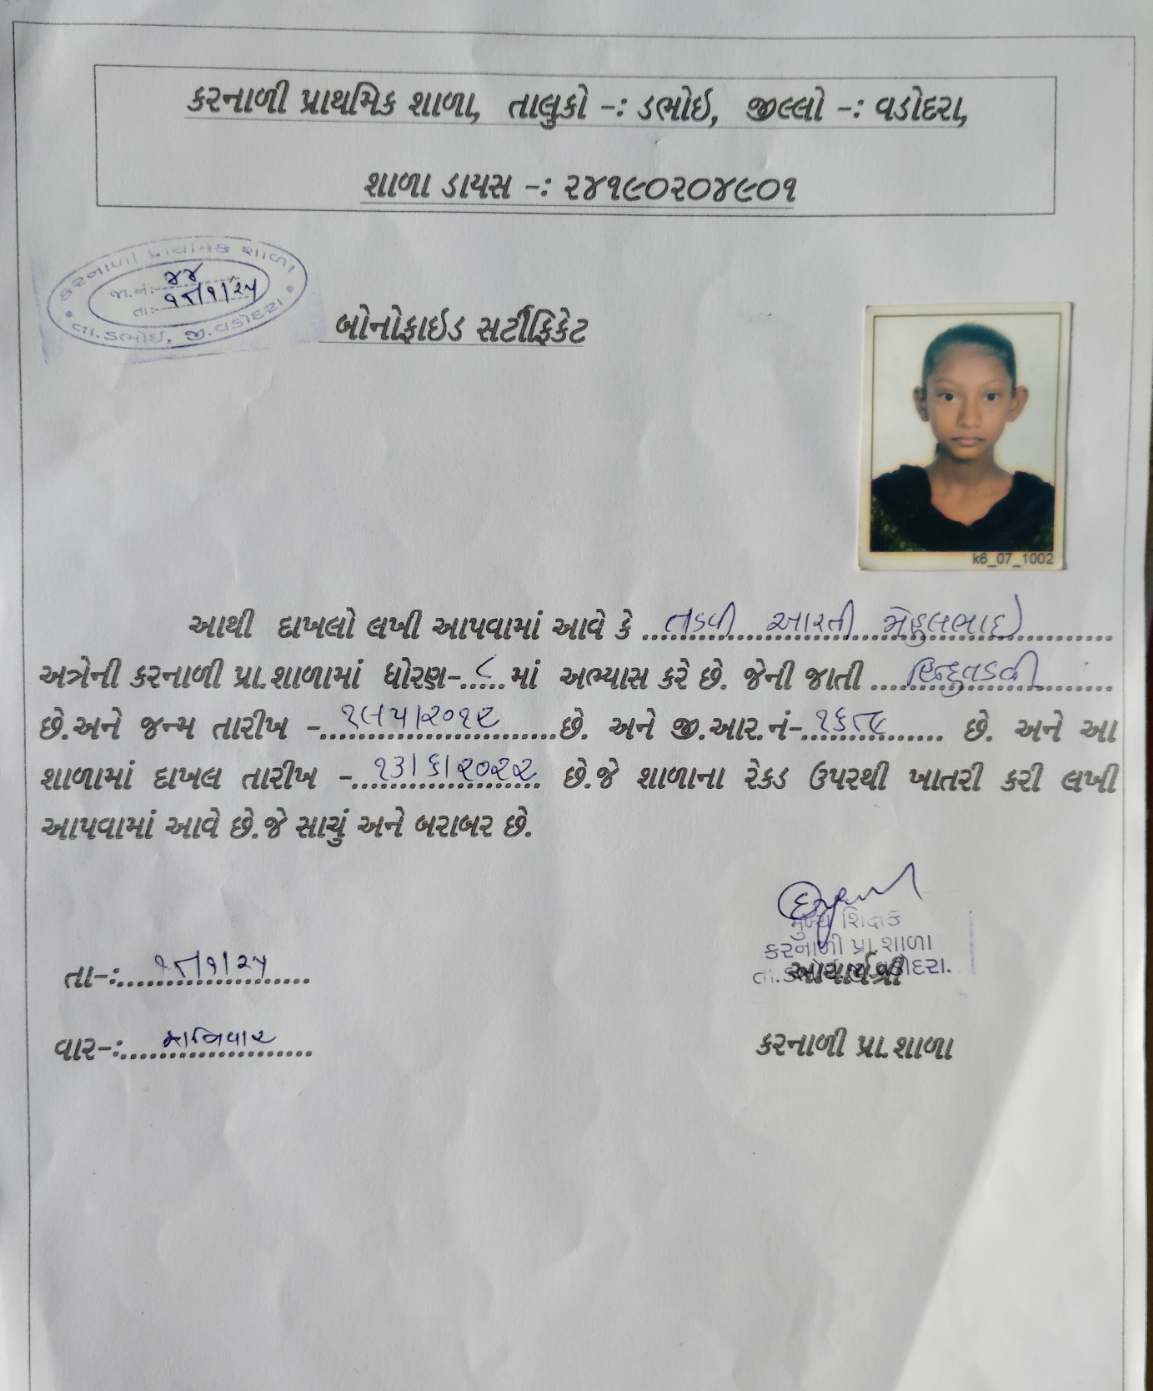 કરનાળી પ્રાથમિક શાળા, તાલુકો -: ડભોઇ, જીલ્લો -: વડોદરા,
શાળા ડાયસ -: ૨૪૧૯૦૨૦૪૯૦૧
કરનાળી પ્રાથમિક શાળા
જા.નં:- ૪૪
તા:- ૧૮/૧/૨૫
તા.ડભોઇ, જી.વડોદરા
બોનોફાઇડ સર્ટીફિકેટ
k6_07_1002
આથી દાખલો લખી આપવામાં આવે કે તડવી આરતી મેહુલભાઇ
અત્રેની કરનાળી પ્રા.શાળામાં ધોરણ-૮ માં અભ્યાસ કરે છે. જેની જાતી હિન્દુતડવી
છે.અને જન્મ તારીખ - છે. અને જી.આર.નં- છે. અને આ
શાળામાં દાખલ તારીખ -૧૩/૬/૨૦૨૨ છે.જે શાળાના રેકડ ઉપરથી ખાતરી કરી લખી
આપવામાં આવે છે.જે સાચું અને બરાબર છે.
મુખ્ય શિક્ષક
કરનાળી પ્રા.શાળા
આચાર્યશ્રી
તા-: ૧૮/૧/૨૫
વાર-: શનિવાર
કરનાળી પ્રા.શાળા